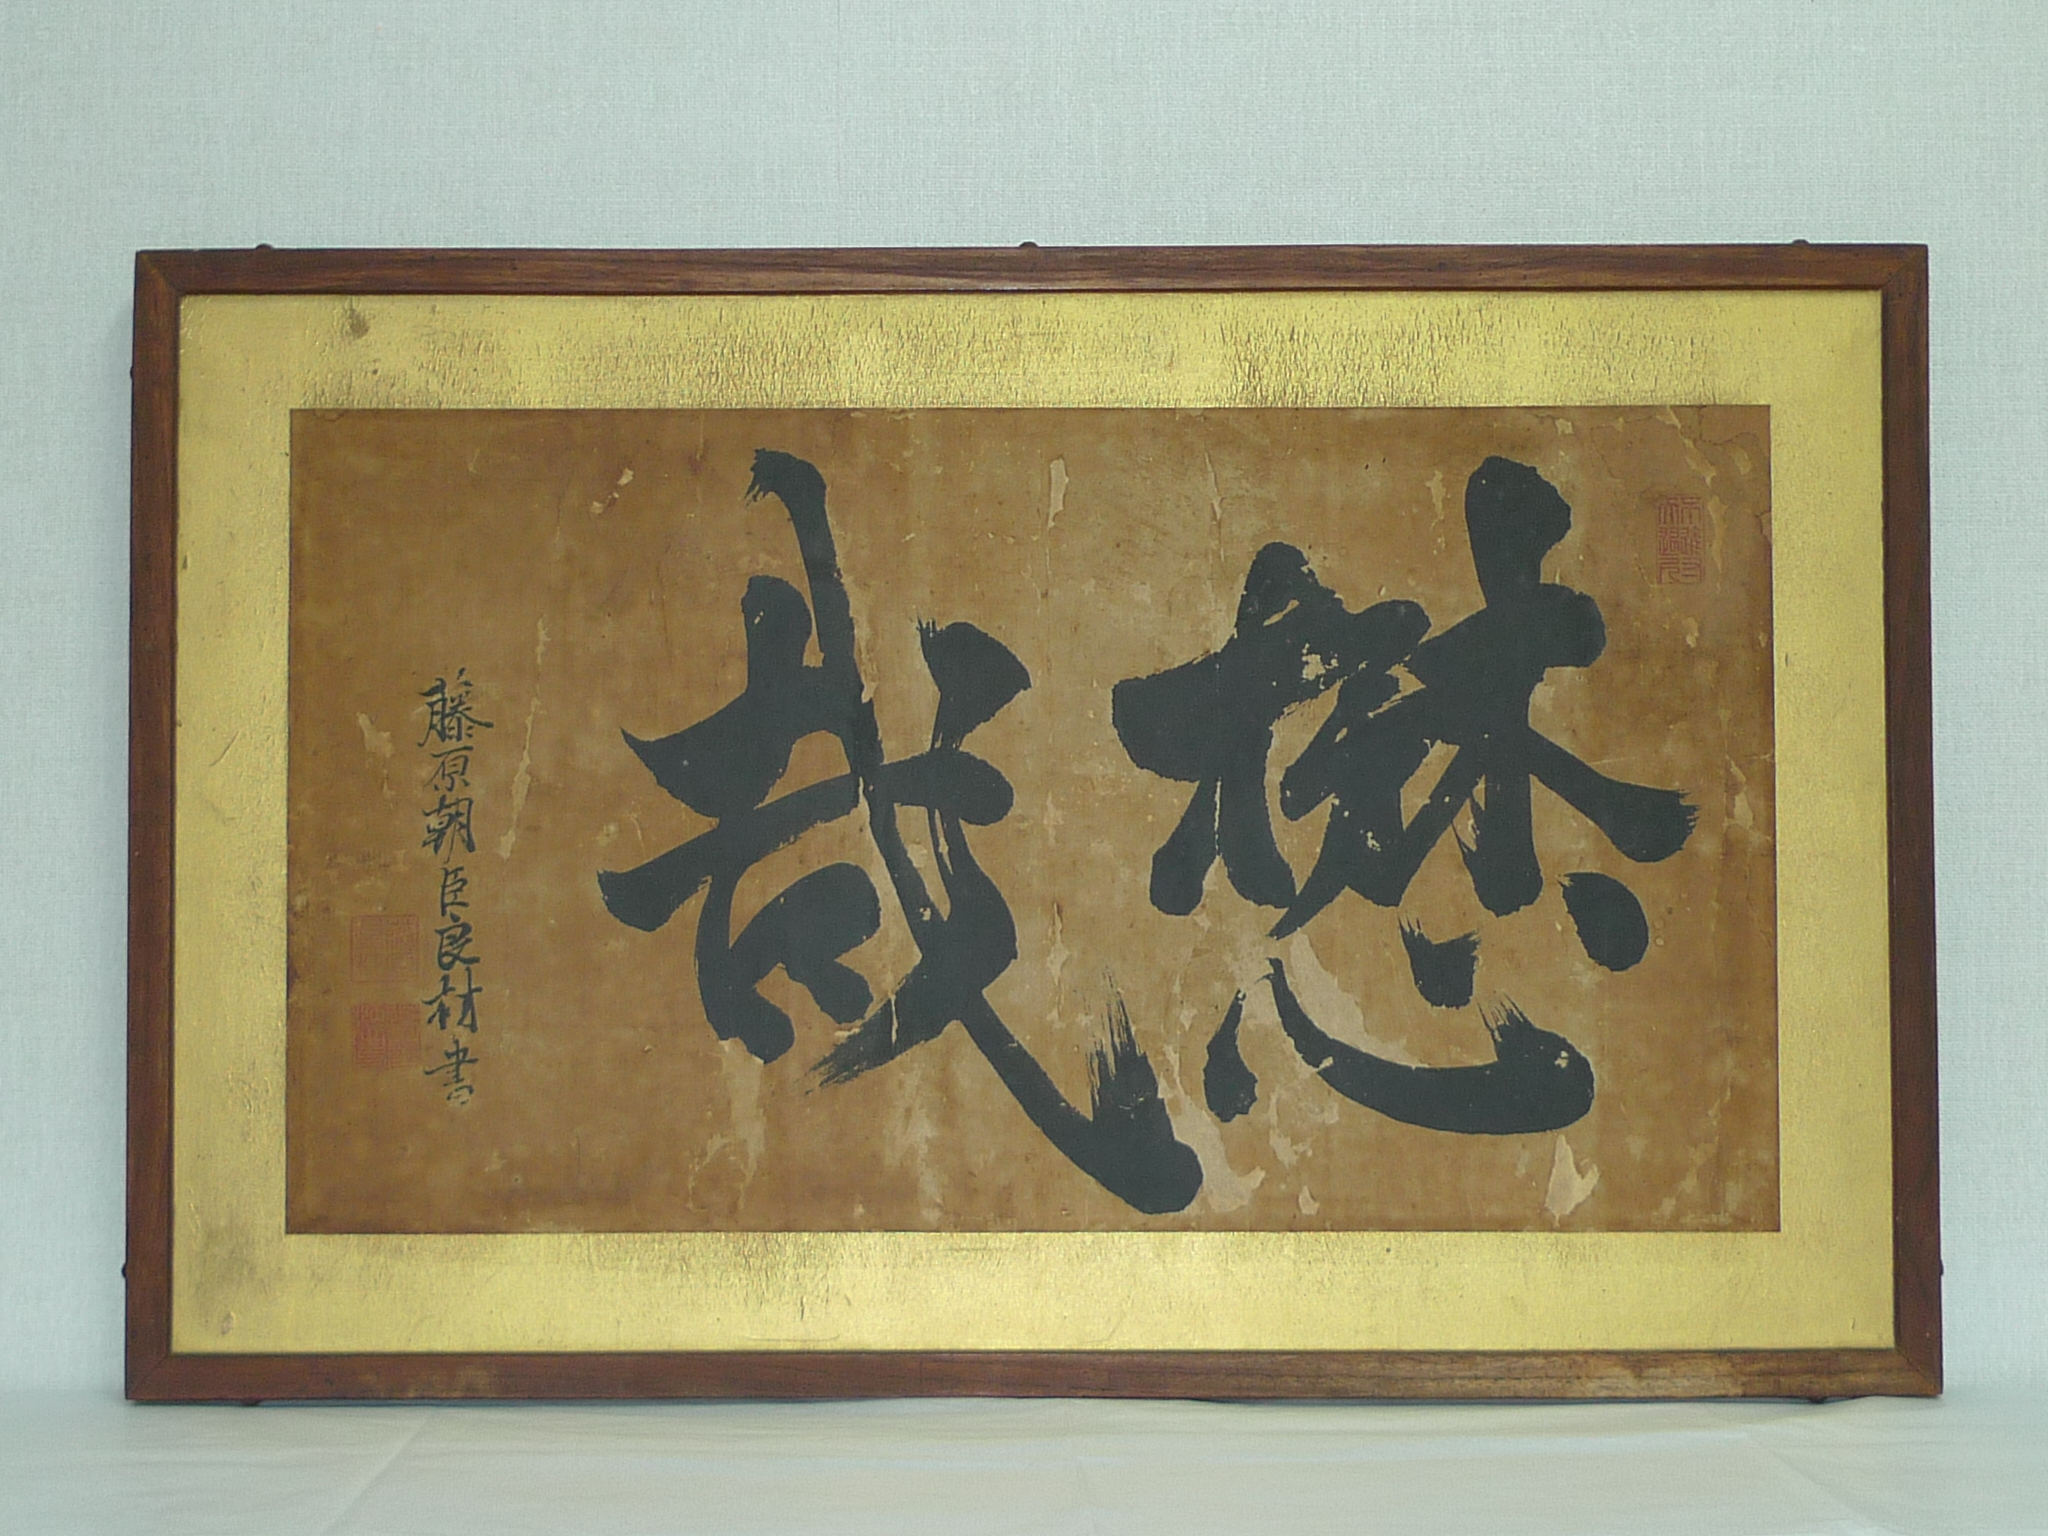 懋哉
藤原朝臣良材書